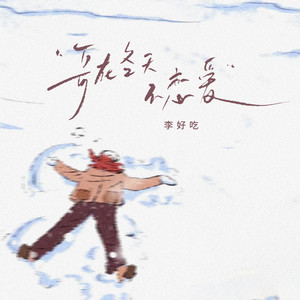 “哥在冬天
不恋爱”
李好吃